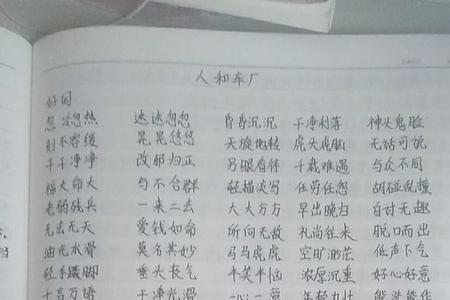 人和车厂
好词
忽冷忽热 迷迷忽忽 昏昏沉沉 干净利落 神头鬼脸
刻不容缓 晃晃悠悠 天旋地转 虎头虎脑 无话可说
干干净净 改邪归正 另眼看待 千载难遇 与众不同
福大命大 与不合群 轻描淡写 任劳任怨 胡碰乱撞
老弱残兵 一来二去 大大方方 早出晚归 自讨无趣
无法无天 爱钱如命 所向无敌 礼尚往来 脱口而出
油光水滑 莫名其妙 马马虎虎 空旷渺茫 低声下气
轻手蹑脚 垂头丧气 半笑半恼 浓厚沉重 好心好意
千言万语 干净光滑 心心一意 年轻力壮 能洗能作